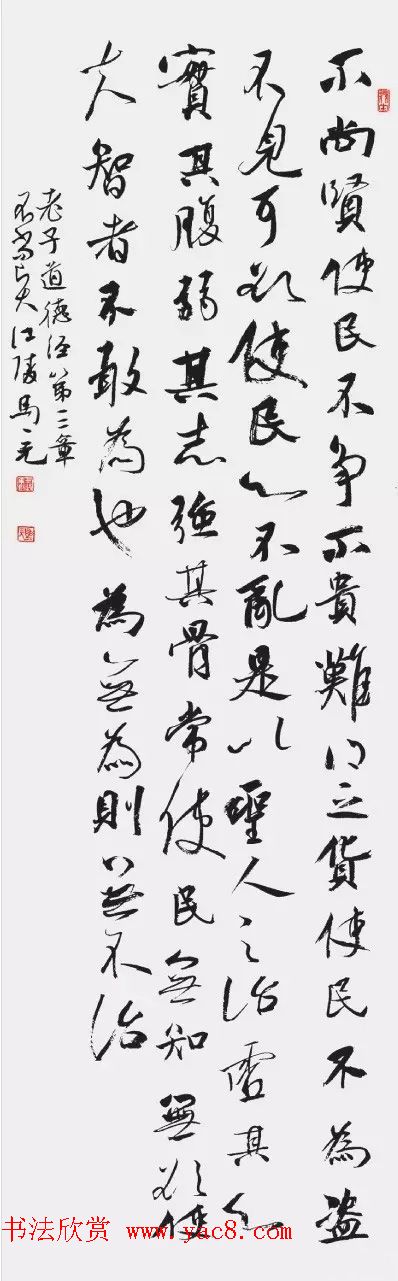 不尚賢使民不争不貴難得之貨使民不為盗
不見可欲使民心不亂是以聖人之治虚其心
實其腹弱其志強其骨常使民無知無欲使
夫智者不敢為也為無為則無不治
老子道德经第三章
不尚贤江陵馬
书法欣赏 www.yac8.com